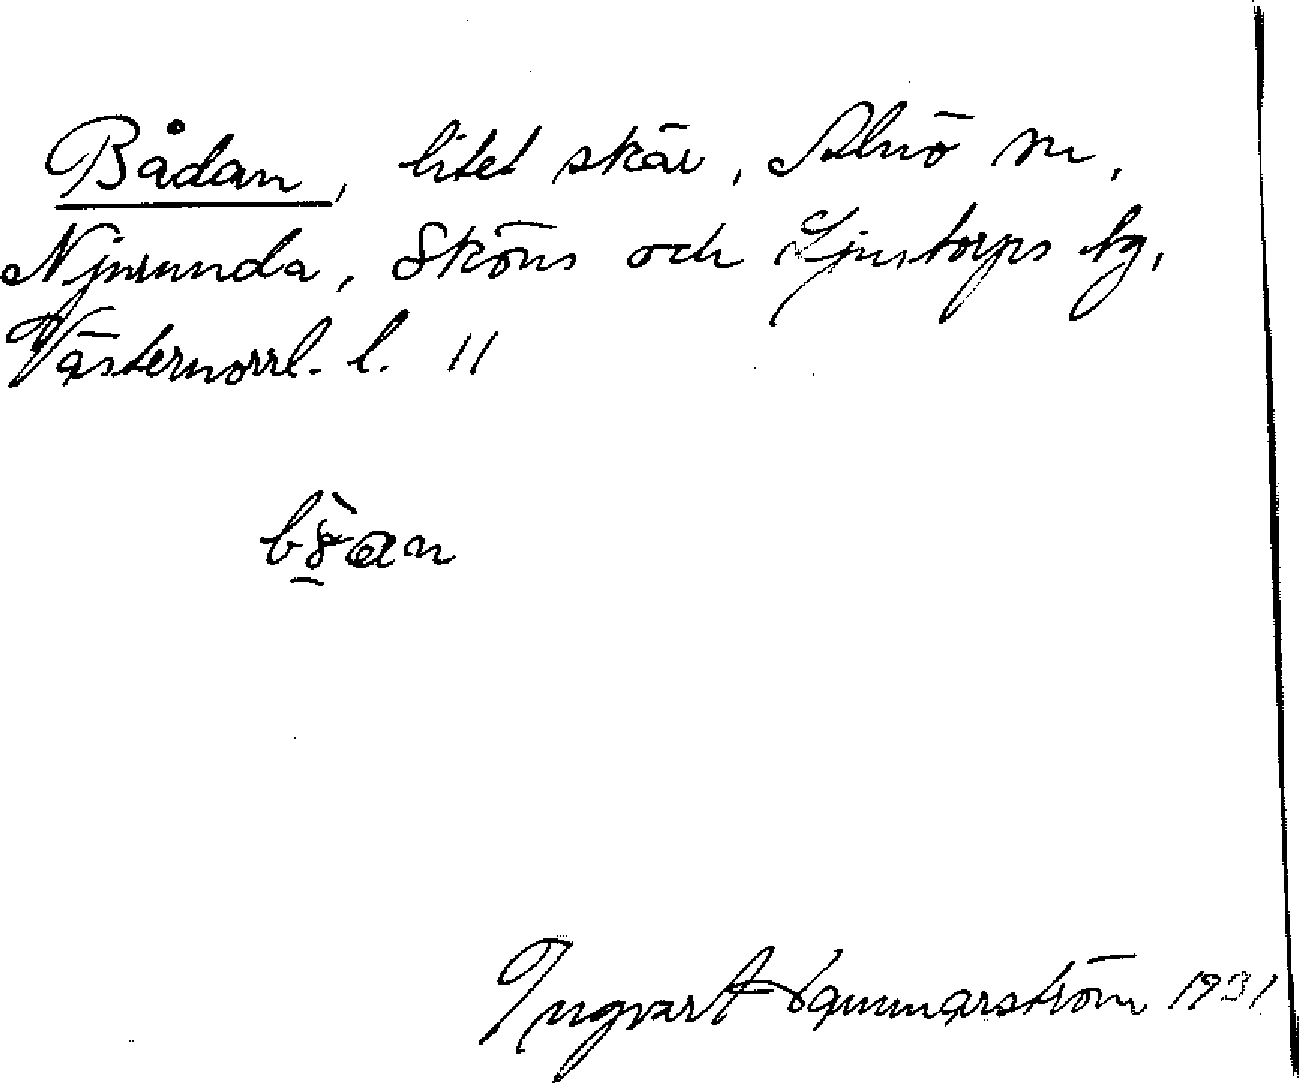 Bådan, litet skär, Alnö sn,
Njurunda, Sköns och Ljustorps tg,
Västernorrl. l. 11
Ingvart Hammarström 1931